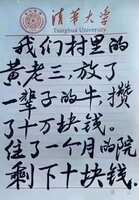 清华大学
Tsinghua University
我们村里的
黄老三，放了
一辈子的牛，攒
了十万块钱。
住了一个月的院，
剩下十块钱。